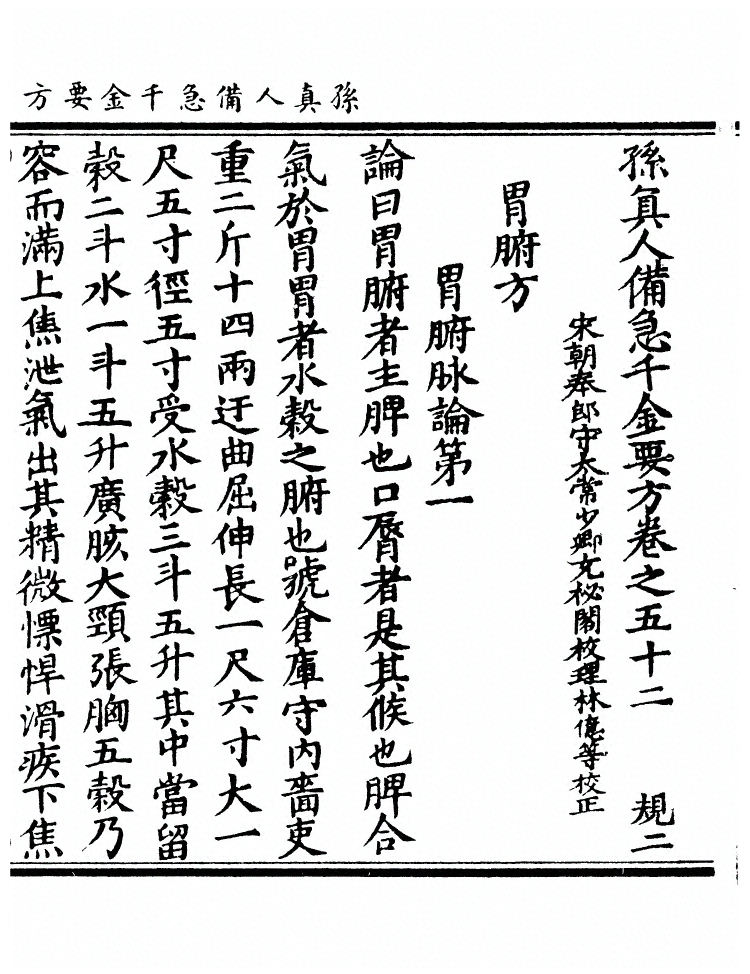 孫真人備急千金要方
孫真人備急千金要方卷之五十二 規二
宋朝奉郎守太常少卿充秘閣校理林億等校正
胃腑方
胃腑脉論第一
論曰胃腑者主脾也口脣者是其候也脾合
氣於胃胃者水榖之腑也號倉庫守内嗇吏
重二斤十四兩迂曲屈伸長一尺六寸大一
尺五寸徑五寸受水榖三斗五升其中當留
榖二斗水一斗五升廣胲大頸張胸五榖乃
容而滿上焦泄氣出其精微慓悍滑疾下焦